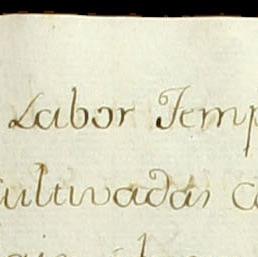 Labor Temp
cultivadas c